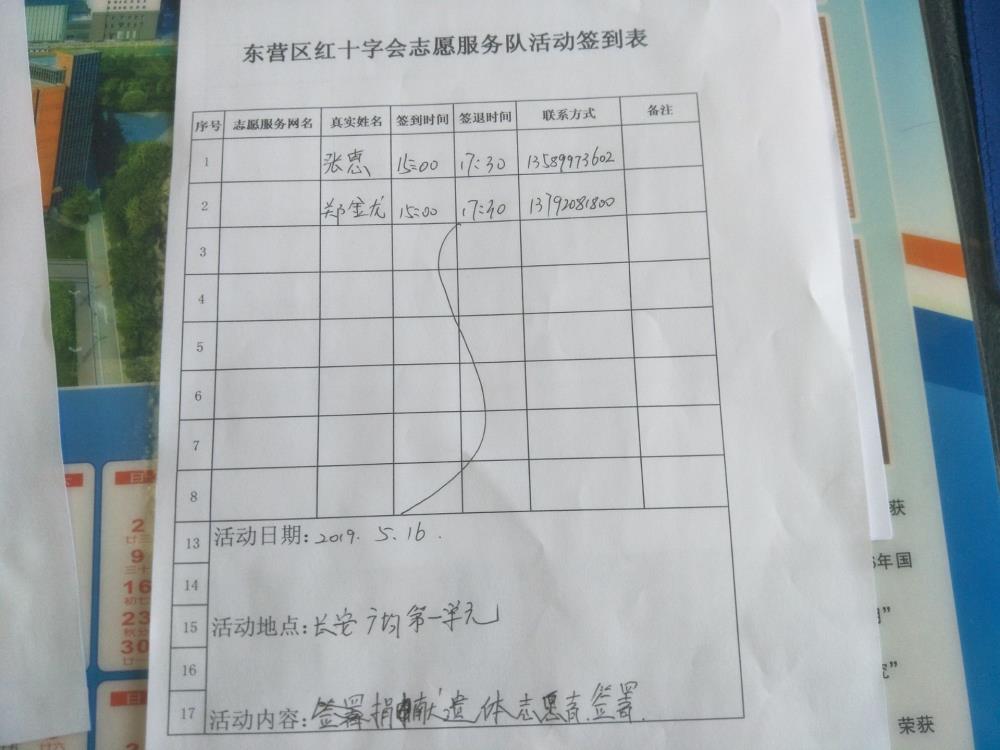 东营区红十字会志愿服务队活动签到表
序号 志愿服务网名 真实姓名 签到时间 签退时间 联系方式 备注
1 张惠 15:00 17:30 13589973602
2 郑金龙 15:00 17:30 13792081800
3
4
5
6
7
8
13 活动日期:2019. 5. 16.
14
15 活动地点:长安 第一单元
16
17 活动内容: 捐献遗体志愿 签署.
日
2
廿三
9
三十
16
初七
23
秋分
30
廿一
日
获
年国
荣获